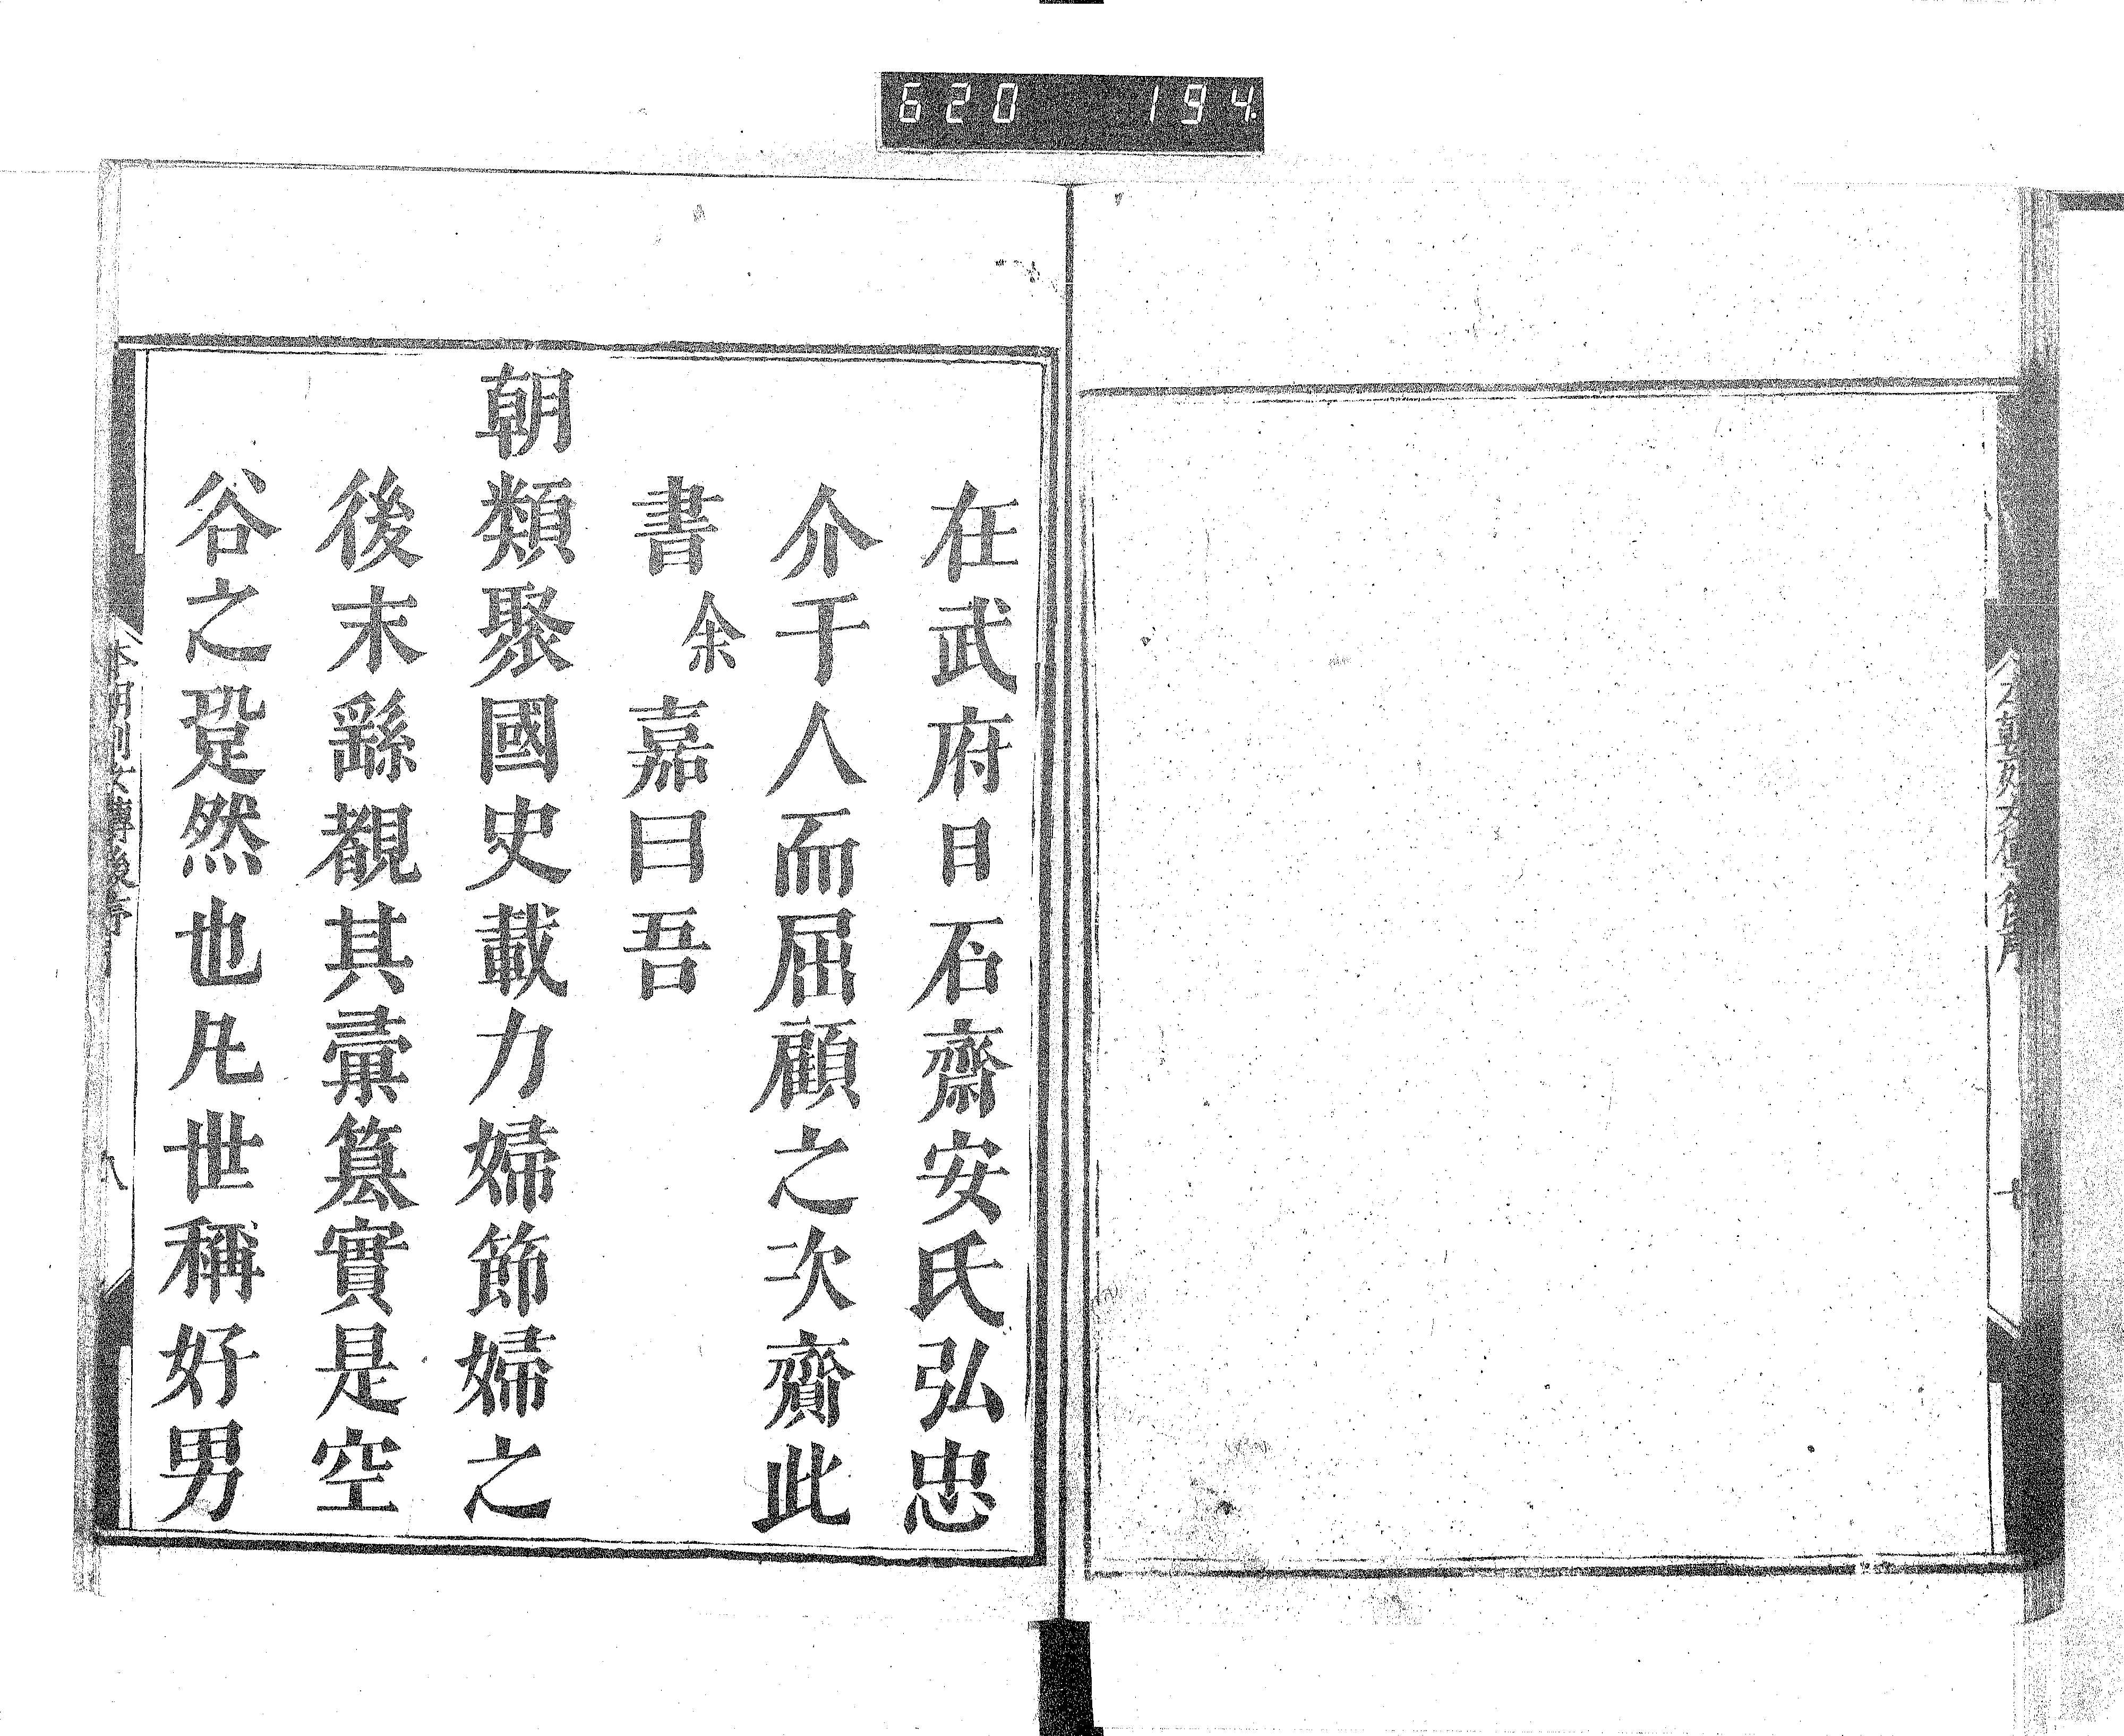 620 194
在武府日石齋安氏弘忠
介于人而屈顧之次齎此
書余嘉曰吾
朝類聚國史載力婦節婦之
後末繇覩其彙篹實是空
谷之跫然也凡世稱好男
本朝列女傳後序
八